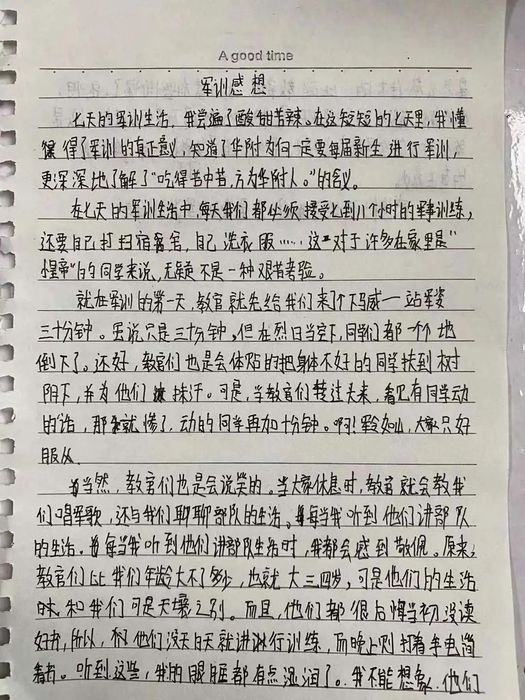 A good time
军训感想
七天的军训生活，我尝遍了酸甜苦辣。在这短短的七天里，我懂
懂得了军训的真正意义，知道了华附为何一定要每届新生进行军训，
更深深地了解了“吃得苦中苦，方为华附人。”的含义。
在七天的军训生活中，每天我们都必须接受七到八个小时的军事训练，
还要自己打扫宿舍，自己洗衣服……这对于许多在家里是“
皇帝”的同学来说，无疑不是一种艰苦考验。
就在军训的第一天，教官就先给我们来了个下马威—站军姿
三十分钟。虽说只是三十分钟，但在烈日当空下，同学们都一个个地
倒下了。还好，教官们也是会体贴的把身体不好的同学扶到树
阴下，并为他们抹汗。可是，当教官们转过头来，看见有同学动
的话，那就惨了，动的同学再加十分钟。啊！军令如山，大家只好
服从.
当然，教官们也是会说笑的。当大家休息时，教官就会教我
们唱军歌，还与我们聊聊部队的生活。每当我听到他们讲部队
的生活.每当我听到他们讲部队生活时，我都会感到敬佩。原来，
教官们比我们年龄大不了多少，也就大三四岁，可是他们的生活
和我们可是天壤之别。而且，他们都很后悔当初没读
好书，所以，他们没天白天就进行训练，而晚上则打着手电筒
看书。听到这些，我的眼眶都有点湿润了。我不能想象，他们